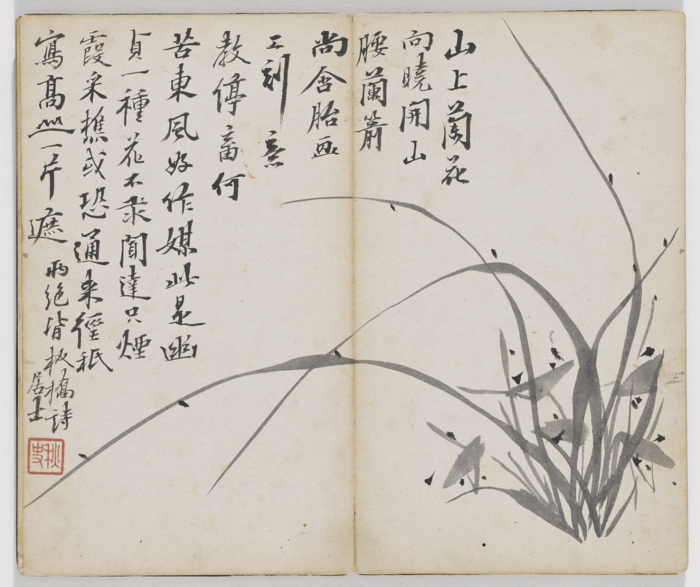 山上蘭花
向曉開山
腰蘭箭
尚含胎画
工刻意
教停畜何
苦東風好作媒此是幽
貞一種花不求聞達只煙
霞采樵或恐通來徑祇
寫高山一片遮
兩絕皆板橋詩
居士